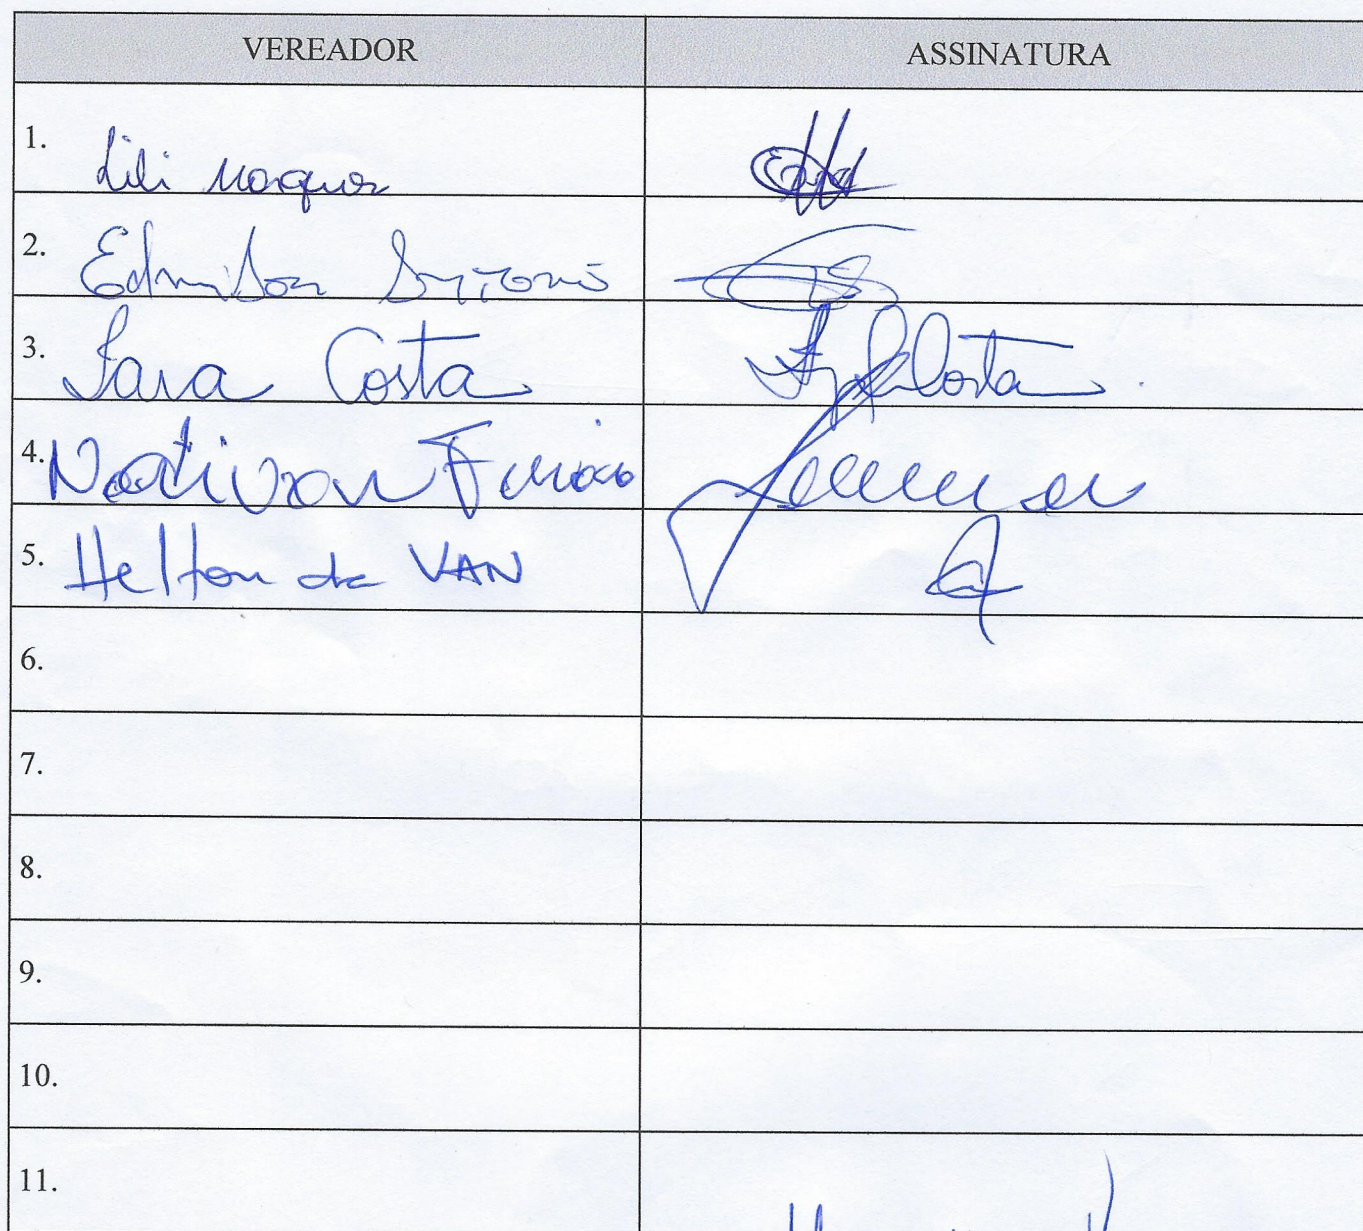 VEREADOR ASSINATURA
1. Lili Marques
2. Edmilson
3. Sara Costa Costa
4. Nativan
5. Helton da VAN
6.
7.
8.
9.
10.
11.